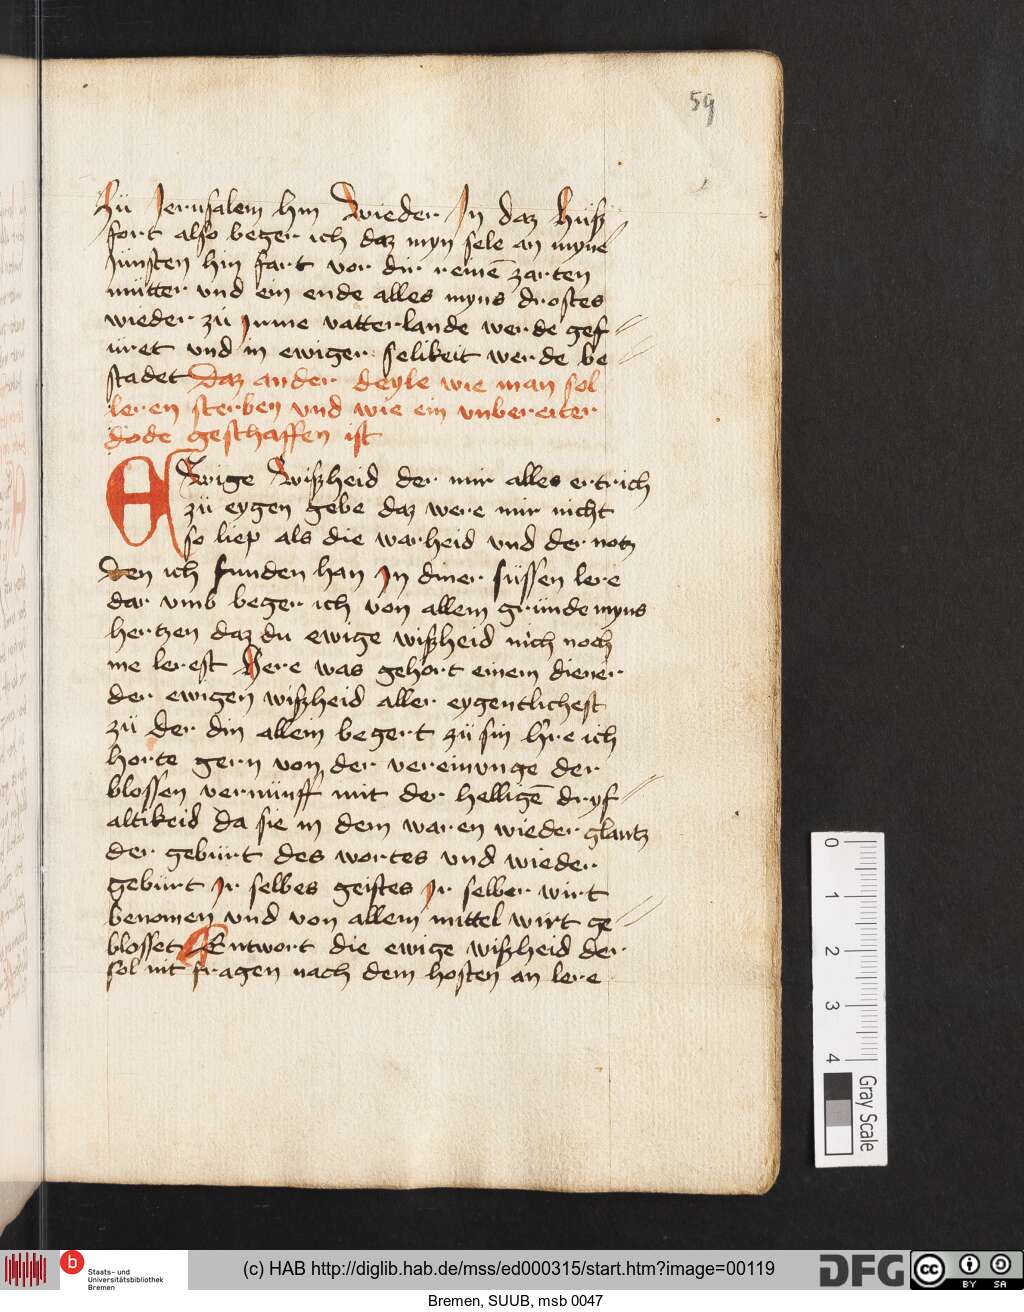 59
Zü Jerusalem hin Wieder In daz hüß
fort also beger ich daz myn sele an mynē
Jünsten hin fart vor dir reinē zarten
mütter vnd ein ende alles myns drostes
wieder zü irme vatterlande werde gef
üret vnd in ewiger selikeit werde be
stadet Daz ander deyle wie man sol
leren sterben vnd wie ein vnbereiter
dode geschaffen ist
EWige Wißheid der mir alles ertrich
zü eygen gebe daz were mir nicht
so liep als die warheid vnd der notz
Den ich funden han In diner süssen lere
dar vmb beger ich von allem gründe myns
hertzen daz du ewige wißheid mich noch
me lerest Here was gehört einem diener
der ewigen wißheid aller eygentlichest
zü der din allem begert zü sin hre ich
horte gern von der vereinunge der
blossen vernünff mit der helligē dryf
altikeid da sie in dem waren wieder glantz
der gebürt des wortes vnd wieder
gebürt Ir selbes geistes Ir selber wirt
benomen vnd von allem mittel wirt ge
blosset Entwort die ewige wißheid der
sol nit fragen nach dem hosten an lere
0 1 2 3 4
Gray Scale
b
Staats- und
Universitätsbibliothek
Bremen
(c) HAB http://diglib.hab.de/mss/ed000315/start.htm?image=00119
DFG
cc BY SA
Bremen, SUUB, msb 0047